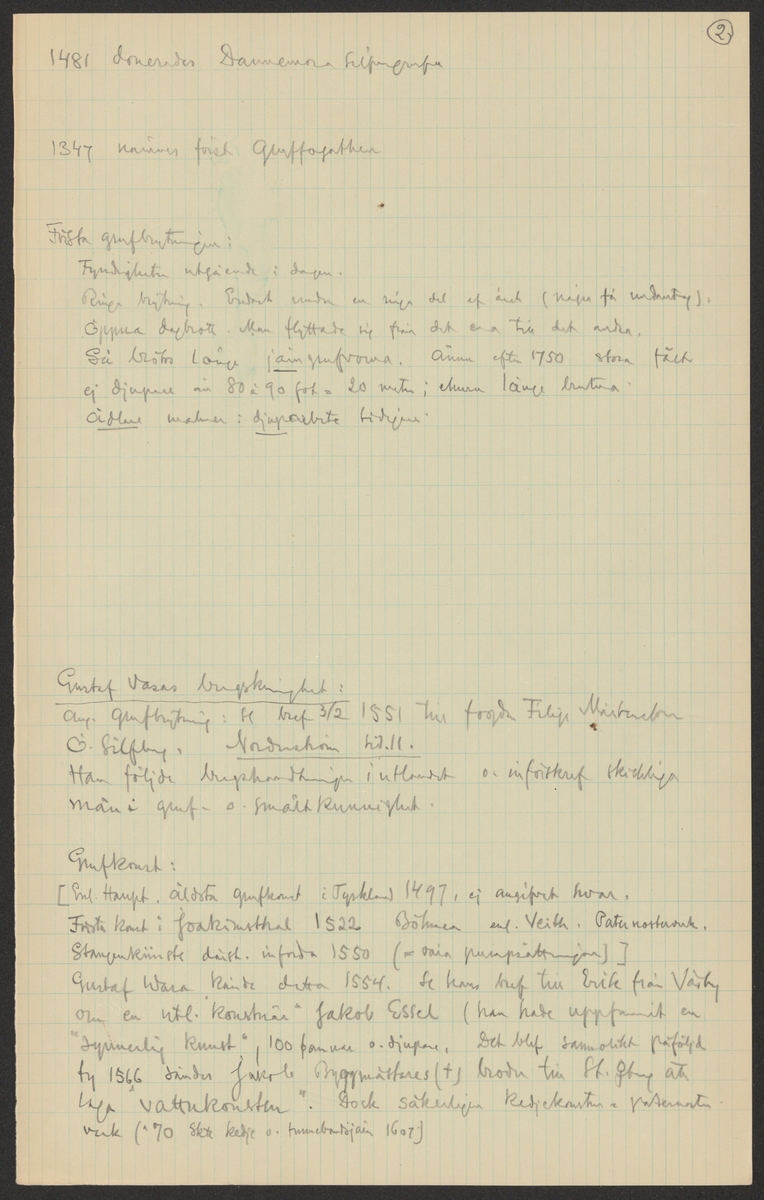 2.
1481 donerades Dannemora Silfvergrufva
1347 nämnes först Gruffogathen
Första grufbrytningen:
Fyndigheten utgående i dagen.
Ringa brytning. Endast under en ringa del af året (några få undantag).
Öppna dagbrott. Man flyttade sig från det ena till det andra.
Så bröts länge järngrufvorna. Ännu efter 1750 stora fält
ej djupare än 80 à 90 fot = 20 meter; ehuru länge brutna.
Ädlare malmer: djuparbete tidigare.
Gustaf Vasas bergskunnighet:
ang. Grufbrytning: Se bref 3/2 1551 till fogden Filip Mårtensson
Ö. Silfberg. Nordenström sid. 11.
Han följde bergshandteringen i utlandet o. införskref skickliga
män i gruf- o. smältkunnighet.
Grufkonst:
[Enl. Haupt. äldsta grufkonst i Tyskland 1497, ej angifvet hvar.
Första konst i Joakimsthal 1522 Böhmen enl. Veith. Paternosterverk.
Stangenkünste därst. införda 1550 (= våra pumpsättningar)]
Gustaf Wasa kände detta 1554. Se hans bref till Erik från Väsby
om en utl. "konstnär" Jakob Essel (han hade uppfunnit en
"synnerlig kunst", 100 famnar o. djupare. Det blef sannolikt påföljd
ty 1566 sändes Jakob Byggmästares (†) broder till St. Kbg att
laga "vattukonsten". Dock säkerligen kedjekonster = paternoster
verk ( 70 kedje o. tunnebandsjärn 1607)